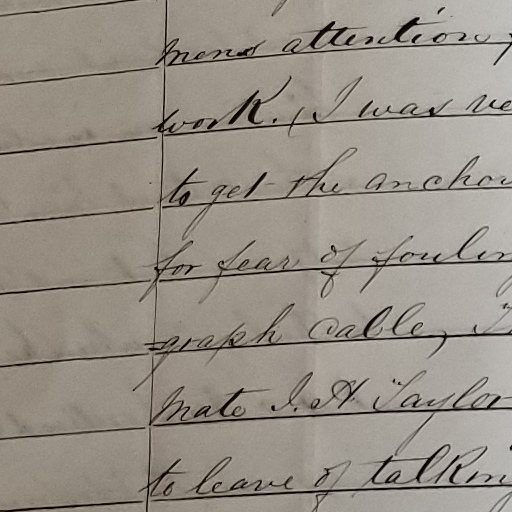 mens attention,
work. (I was ve
to get the anchor
for fear of foulin
=graph Cable,
mate J. H Taylor
to leave of talkin